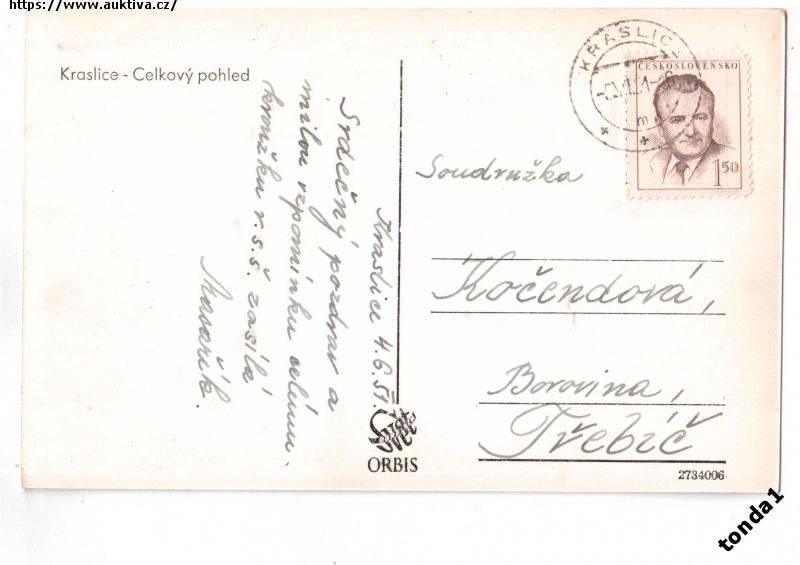 https://www.auktiva.cz/
Kraslice - Celkový pohled
Kraslice 4.6.51.
Srdečný pozdrav a
milou vzpomínku celému
kroužku r.s.š. zasílá
KRASLICE
ČESKOSLOVENSKO
1 50
Soudružka
Kočendová,
Borovina,
Třebíč
Svět
ORBIS
2734006
tonda1